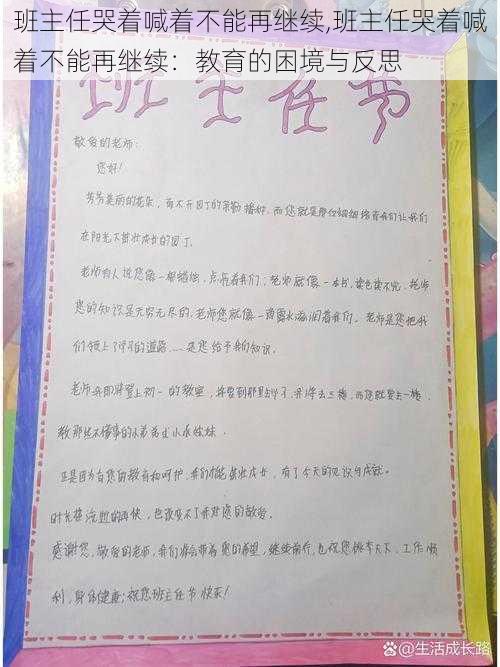 班主任哭着喊着不能再继续,班主任哭着喊
着不能再继续：教育的困境与反思
班主任节
敬爱的老师:
您好!
芳芳美丽的花朵，离不开园丁的辛勤播种，而您就是那位细细培育我们让我们
在阳光下茁壮成长的园丁。
老师有人说您像一根蜡烛，点亮着我们；老师就像一本书，读也读不完，老师
您的知识是无穷无尽的，老师您就像一滴露水滋润着我们。老师是您把我
们领上了学习的道路……是您给予我们知识。
老师我即将登上初一的教室，将要到那里去学了，我们将去三楼，而您就要去一楼，
教那些不懂事的小弟弟或小小妹妹。
正是因为有您的教育和呵护，我们才能茁壮成长，有了今天的见识与成就。
时光荏 逝的再快，也改变不了我对您的敬爱。
感谢您，敬爱的老师，我们将会带着您的希望，继续前行，也祝您桃李天下，工作顺
利，身体健康；祝您班主任节快乐!
@生活成长路